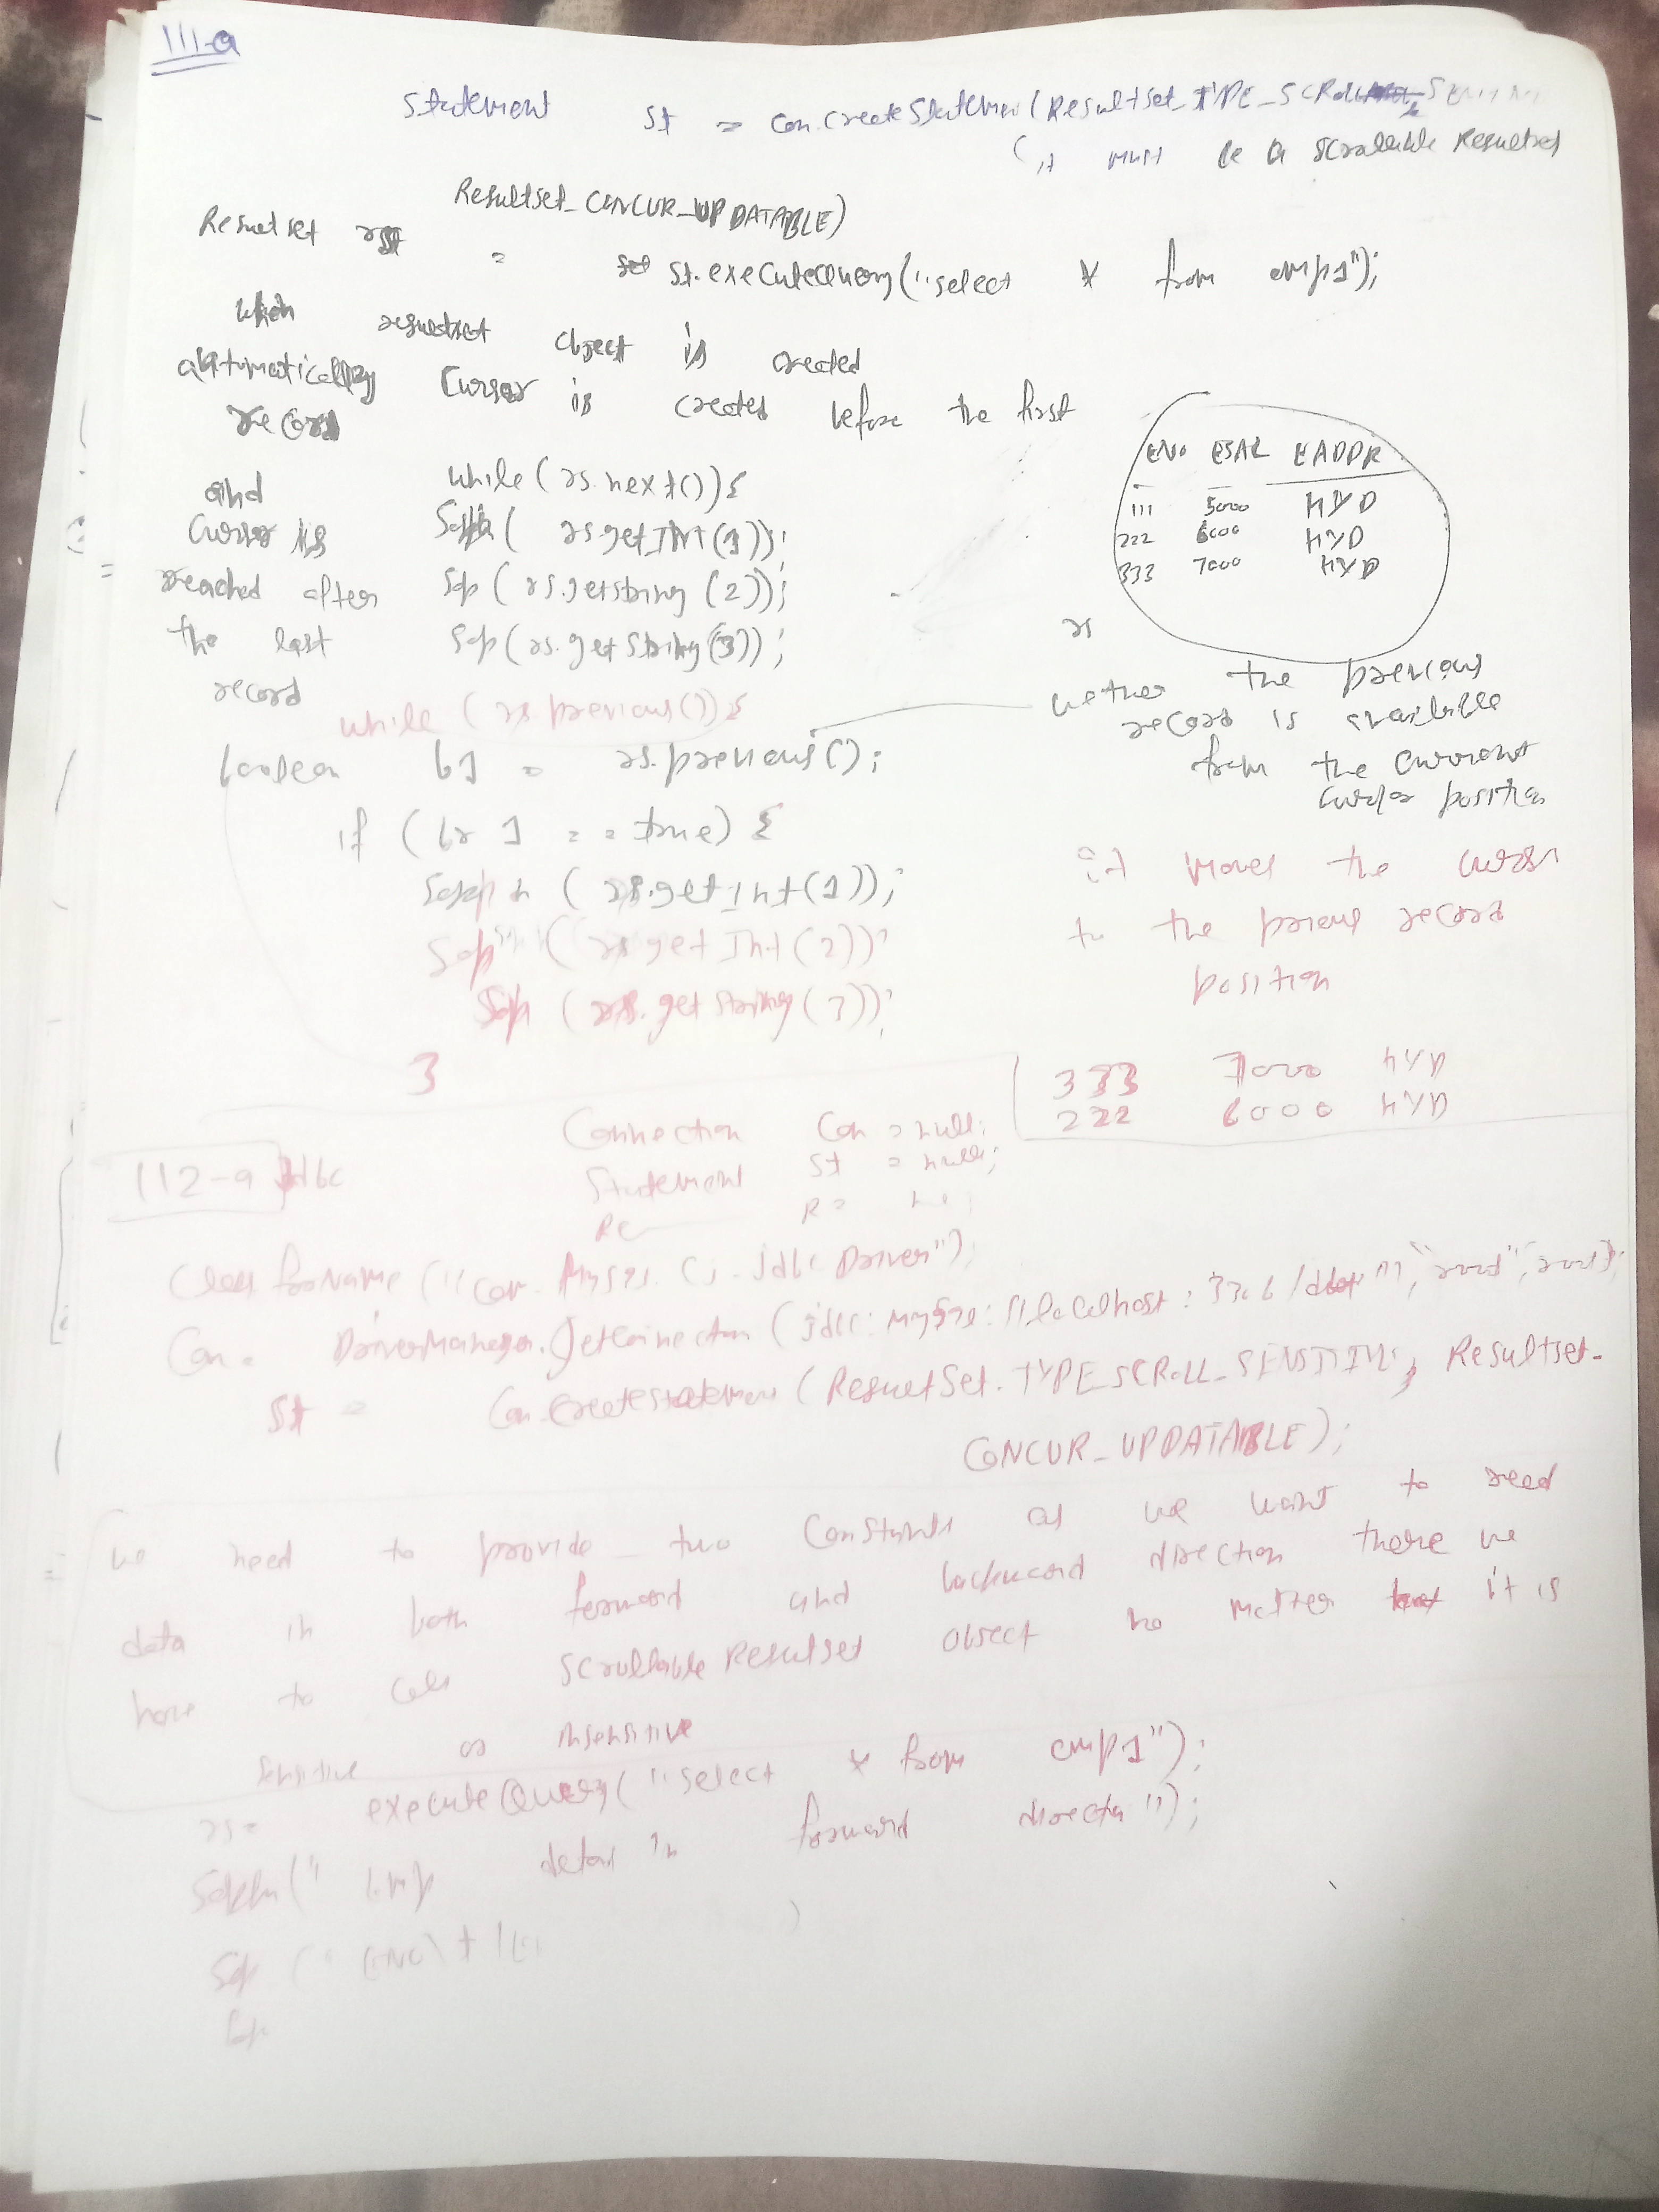 111-a
Statement st = con.createStatemen(Resultset_TYPE_SCROLL_
(it must be a scrollable Resultset
Resultset_CONCUR_UPDATABLE)
Resultset rst = st.executequery("select * from emp1");
when resultset object is created
automatically Cursor is created before the first
record
ENO ESAL EADDR
111 5000 HYD
222 6000 HYD
333 7000 HYD
rs
and while(rs.next()){
Cursor is Sopln( rs.getInt(1));
reached after Sop( rs.getstring (2));
the last Sop(rs.getString(3));
record
while (rs.previous()){
boolean b1 = rs.previous();
wether the previous
record is available
from the current
cursor position
if (br 1 == true) {
Sopln (rs.getInt(1));
Sop (rs.getInt(2));
Sop (rs.getString(3));
it moves the cursor
to the previous record
position
3
333 7000 HYD
222 6000 HYD
112-a Jdbc
Connection Con = null;
Statement st = null;
Re R=
Class forName ("com.Mysql.Cj.jdbc.Driver");
Con = DriverManager.getConnection (jdbc:mysql://localhost:3306/
st = Con.createstatement (ResultSet.TYPE_SCROLL_SENSITIVE, Resultset-
CONCUR_UPDATABLE);
we need to provide two Constants as we want to read
data in both forward and backward direction there we
have to call Scrollable Resultset object no matter it is
sensitive or insensitive
rs= executeQuery("select * from emp1");
Sopln(" Emp detail in forward direction");
Sop ("
Sop